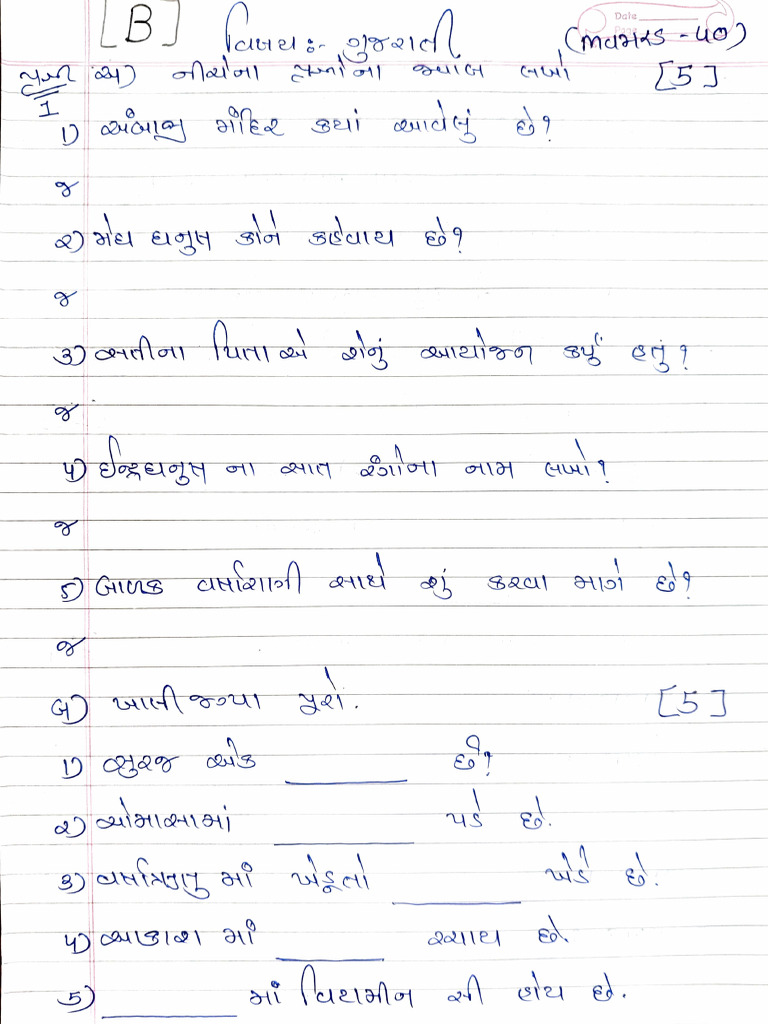 [B]
Date
વિષય:- ગુજરાતી (માર્ક્સ - ૫૦)
પ્રશ્ન 1 અ) નીચેના પ્રશ્નોના જવાબ લખો [5]
1) અંબાજી મંદિર કયાં આવેલું છે?
જ
૨) મેઘ ધનુષ કોને કહેવાય છે?
જ
૩) સતીના પિતા એ શેનું આયોજન કર્યું હતું?
જ
૪) ઈન્દ્રધનુષ ના સાત રંગોના નામ લખો?
જ
5) બાળક વર્ષારાણી સાથે શું કરવા માગે છે?
જ
બ) ખાલી જગ્યા પૂરો. [5]
1) સુરજ એક ________ છે?
૨) ચોમાસામાં ________ પડે છે.
૩) વર્ષાઋતુ માં ખેડૂતો ________ ખેડે છે.
૪) આકાશ માં ________ રચાય છે.
5) ________ માં વિટામીન સી હોય છે.